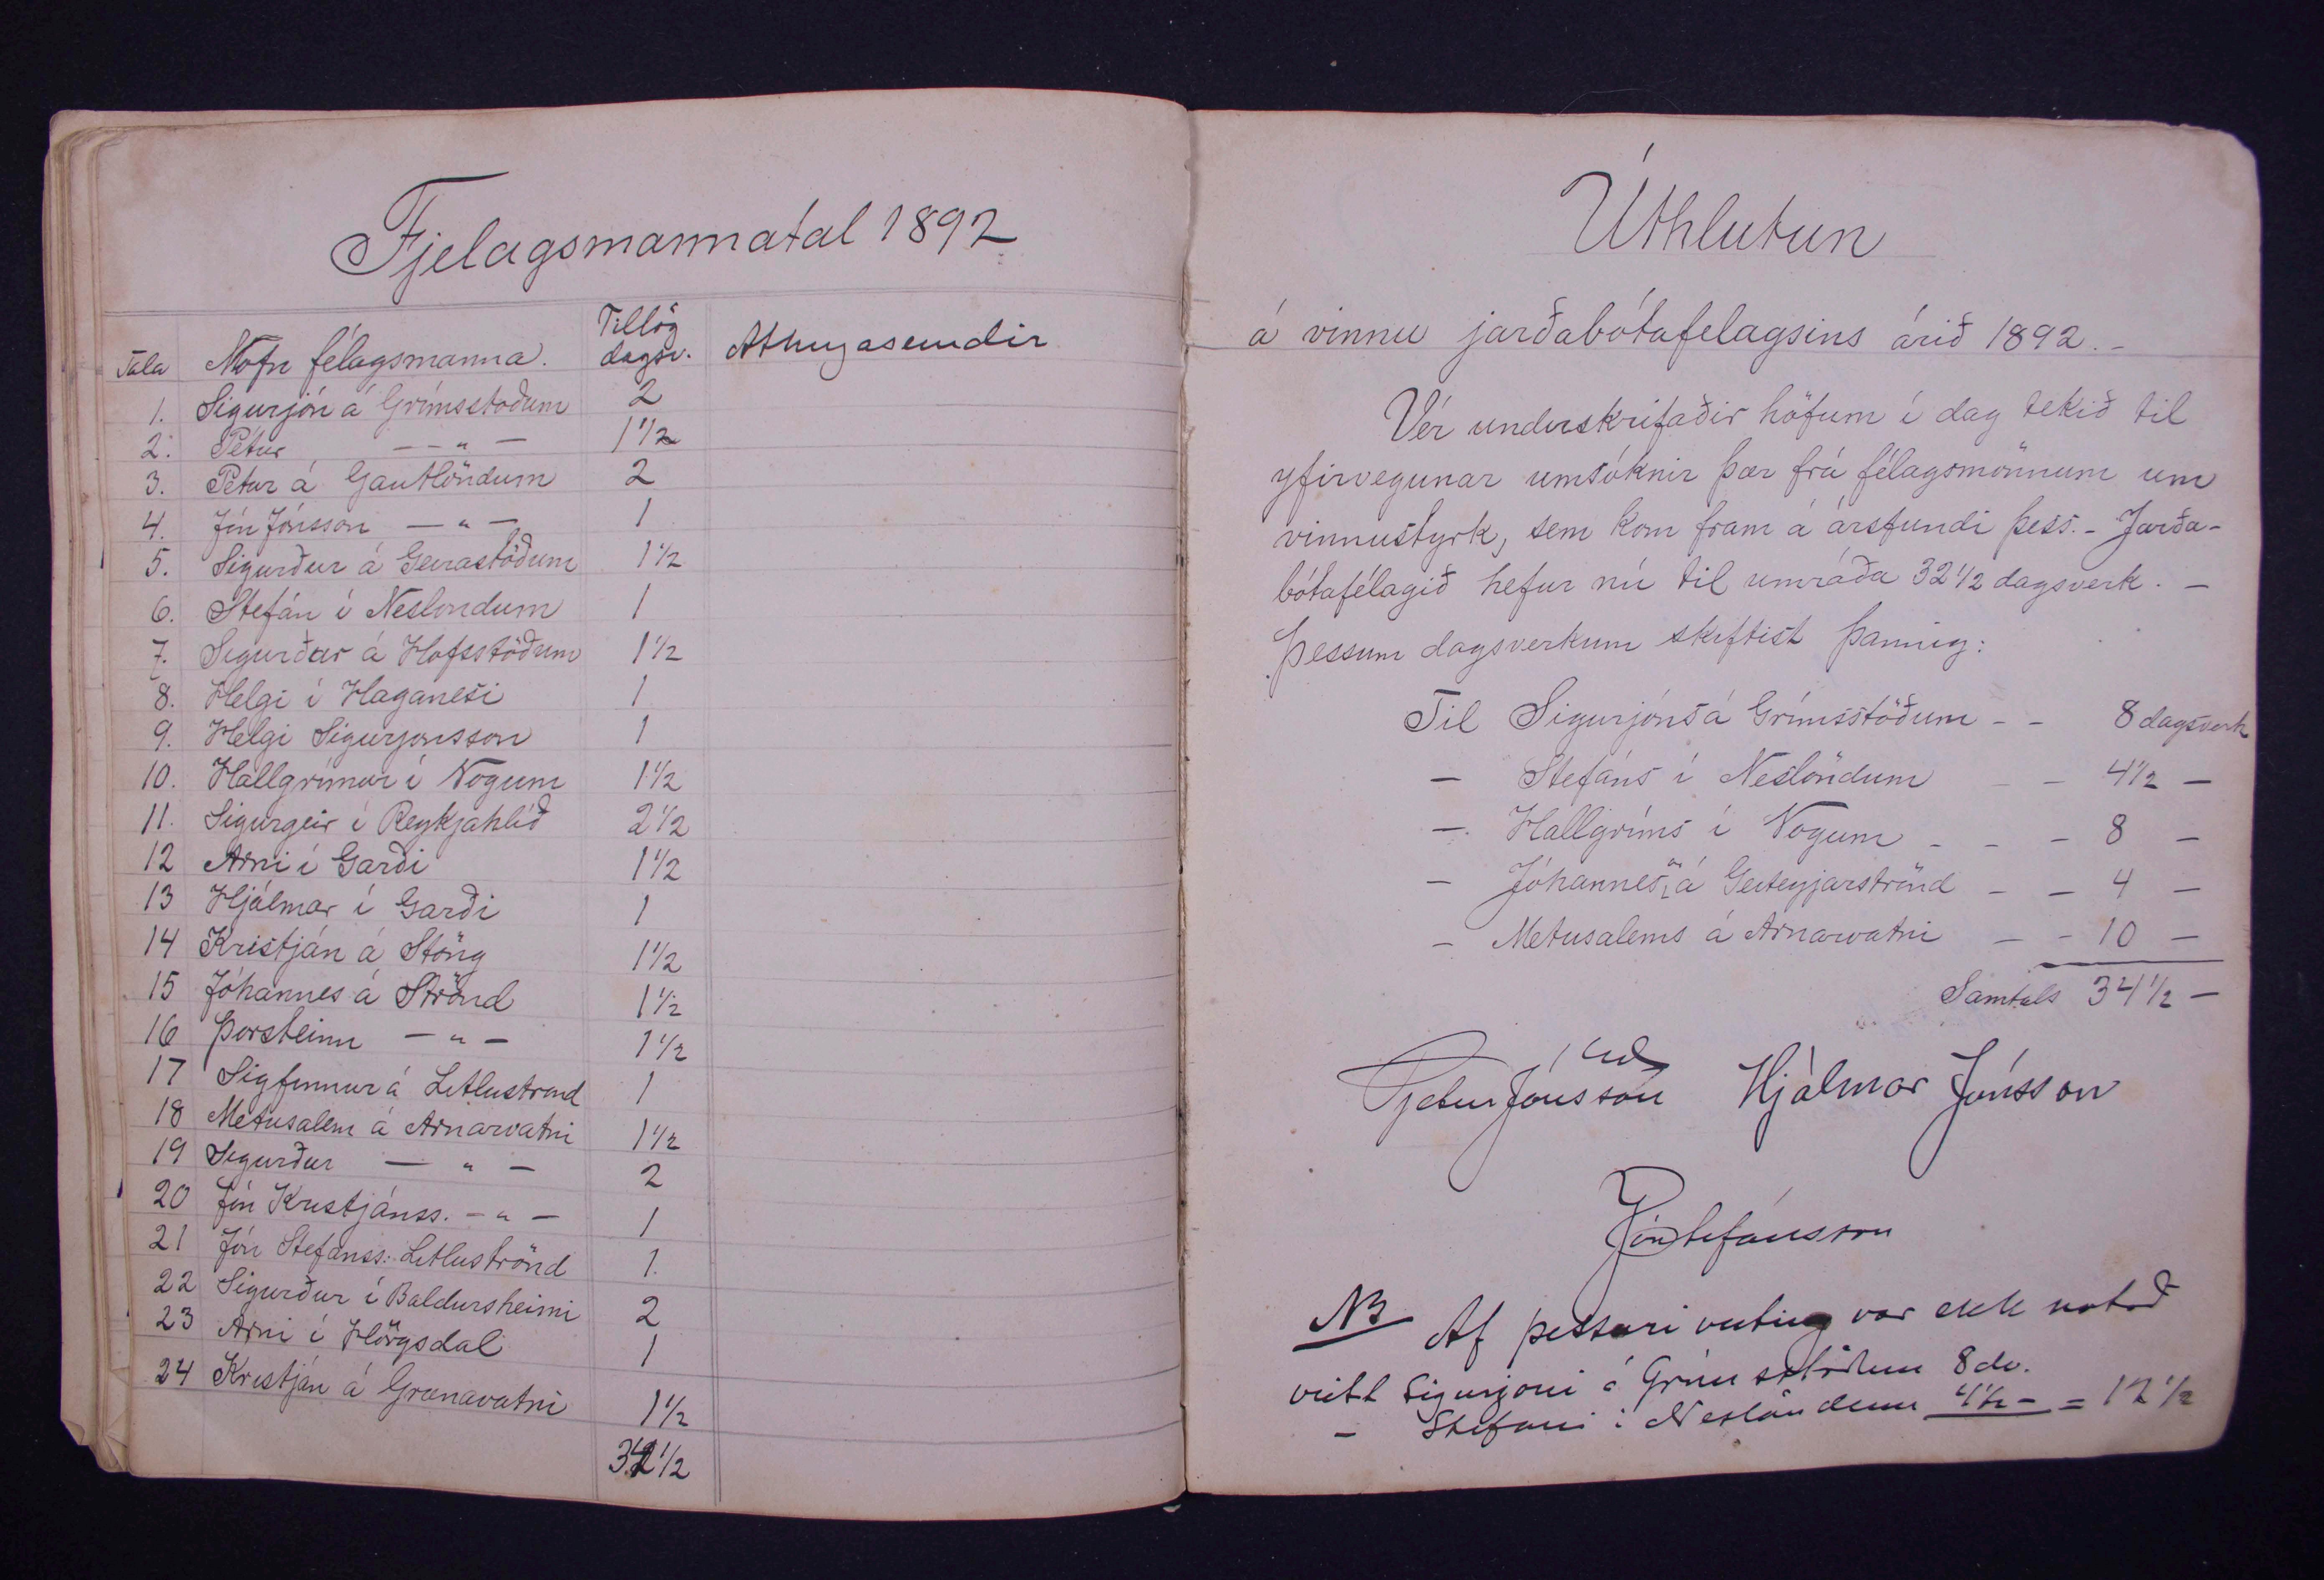 Fjelagsmannatal 1892
Tala Nöfn félagsmanna. Tillög dagsv. Athugasemdir
1. Sigurjón á Grímsstöðum 2
2. Pétur — „ — 1 1/2
3. Pétur á Gautlöndum 2
4. Jón Jónsson — „ — 1
5. Sigurður á Geirastöðum 1 1/2
6. Stefán í Neslondum 1
7. Sigurður á Hofsstöðum 1 1/2
8. Helgi í Haganesi 1
9. Helgi Sigurjonsson 1
10. Hallgrímur í Vogum 1 1/2
11. Sigurgeir í Reykjahlíð 2 1/2
12 Arni í Garði 1 1/2
13 Hjálmar í Garði 1
14 Kristján á Stöng 1 1/2
15 Jóhannes á Strönd 1 1/2
16 Þorsteinn — „ — 1 1/2
17 Sigfinnur á Litlustrond 1
18 Metusalem á Arnarvatni 1 1/2
19 Sigurður — „ — 2
20 Jón Kristjánss. — „ — 1
21 Jón Stefánss: Litluströnd 1.
22 Sigurður í Baldursheimi 2
23 Arni í Hörgsdal 1
24 Kristján á Grænavatni 1 1/2
1/2
Úthlutun
á vinnu jarðabótafelagsins árið 1892. –
Vér underskrifaðir höfum í dag tekið til
yfirvegunar umsóknir þær frá félagsmönnum um
vinnustyrk, sem kom fram á ársfundi þess. – Jarða-
bótafélagið hefur nú til umráða 32 1/2 dagsverk. –
Þessum dagsverkum skiftist þannig:
Til Sigurjóns á Grímsstöðum – – 8 dagsverk
— Stefáns í Neslöndum – – 4 1/2 —
—. Hallgríms í Vogum – – – 8 —
— Jóhannesar á Geiteyjarströnd – – 4 —
— Metusalems á Arnarvatni – – 10 —
Samtals 34 1/2 —
Pjetur Jónsson Hjálmar Jónsson
Jón Stefánsson
NB Af þessari veiting var ekk notað
veitt Sigurjoni á Grímsstöðum 8 dv.
— Stefani í Neslöndum 4 1/2 — = 12 1/2